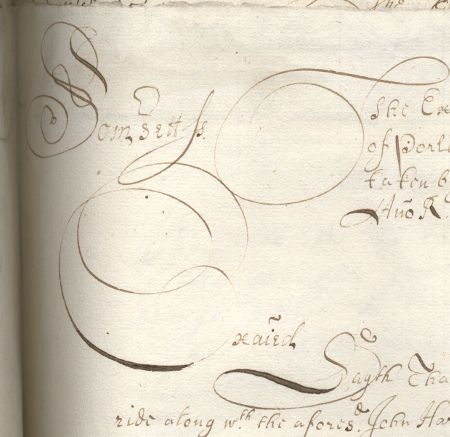 Som̃sett ss.
The Ex
of Porl
taken b
Año R
Exaied
Sayth Tha
ride along wth the aforesd. John Ha